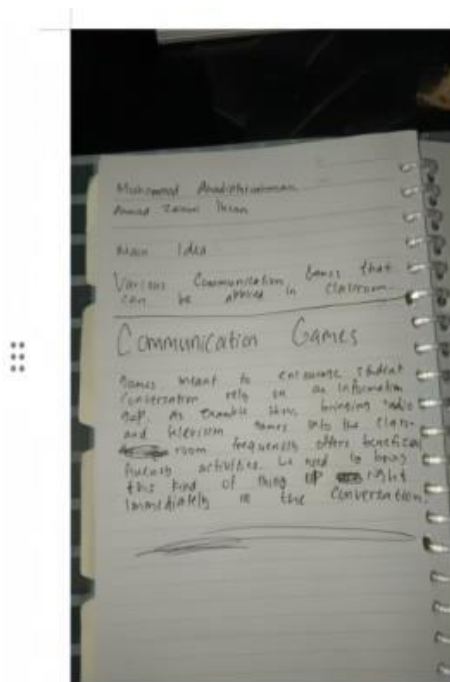 Main Idea
Various Communication Games that
can be applied in Classroom
Communication Games
Games meant to encourage student
Conversation rely on an information
gap. As example show, bringing radio
and television games into the class-
room frequently offers benefical
fluency activities. We need to bring
this kind of thing up right
Immediately in the Conversation.